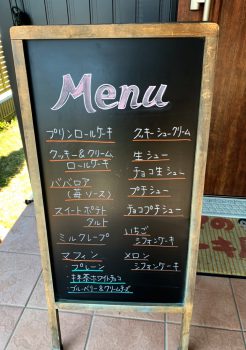 Menu
プリンロールケーキ
クッキー&クリーム
ロールケーキ
ババロア
(苺ソース)
スイートポテト
タルト
ミルクレープ
マフィン
プレーン
・抹茶ホワイトチョコ
・ブルーベリー&クリームチーズ
クッキーシュークリーム
生シュー
チョコ生シュー
プチシュー
チョコプチシュー
いちご
シフォンケーキ
メロン
シフォンケーキ